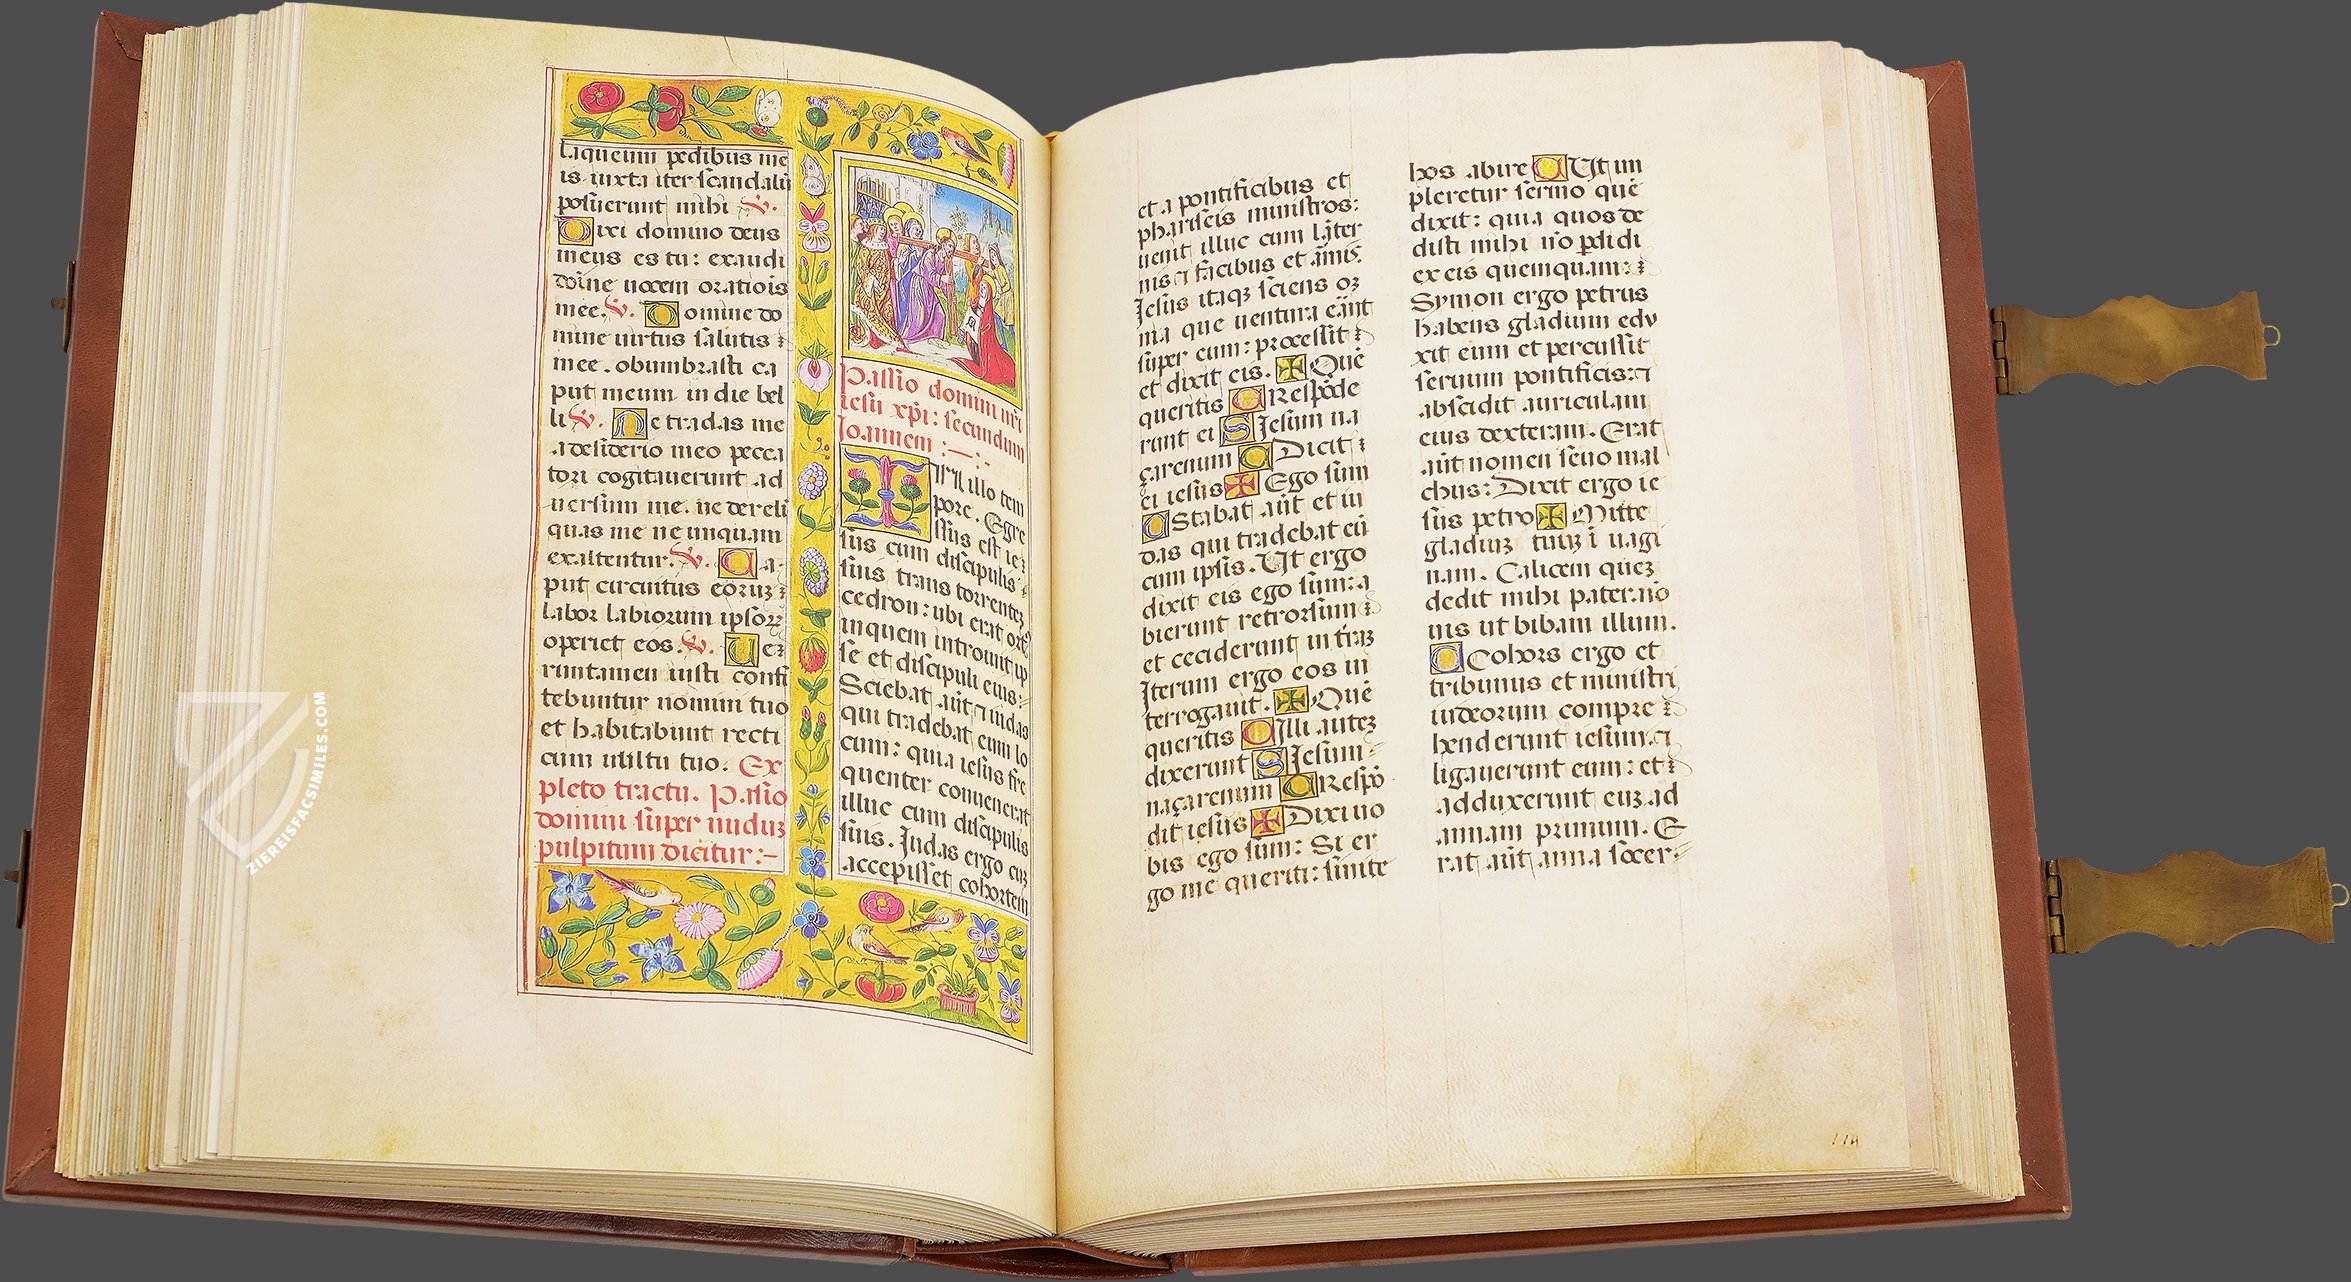 laqueum pedibus me
is iuxta iter scandalū
posuerunt mihi V.
Dixi domino deus
meus es tu: exaudi
dom̄ne uocem orationis
mee. V. Domine do
mine uirtus salutis
mee. obumbrasti ca
put meum in die bel
li V. Ne tradas me
a desiderio meo pecca
tori cogitauerunt ad
uersum me. ne derelī
quas me ne unquam
exaltentur. V. Ca
put circuitus eorum
labor labiorum ipsoꝝ
operiet eos. V. Ue
runtamen iusti confi
tebuntur nomini tuo
et habitabunt recti
cum uultu tuo. Ex
pleto tractu. Passio
domini super nuduz
pulpitum dicitur:–
Passio domini nr̄i
iesu xp̄i: secundum
Joannem :–:–
IN illo tem
pore. Egre
ssus est ie
sus cum discipulis
suis trans torrentez
cedron: ubi erat ort⁹
in quem introiuit ip
se et discipuli eius:
Sciebat aūt ⁊ iudas
qui tradebat eum lo
cum: quia iesus fre
quenter conuenerat
illuc cum discipulis
suis. Judas ergo cuz
accepisset cohortem
et a pontificibus et
phariseis ministros:
uenit illuc cum lāter
nis ⁊ facibus et armis.
Jesus itaqꝫ sciens oꝫ
nia que uentura erāt
super eum: processit
et dixit eis. ✠ Quē
queritis C Respōde
runt ei S Jesum na
çarenum C Dicit
ei iesus ✠ Ego sum
C Stabat aūt et iu
das qui tradebat eū
cum ipsis. Ut ergo
dixit eis ego sum: a
bierunt retrorsum
et ceciderunt in traꝫ
Iterum ergo eos in
terrogauit. ✠ Quē
queritis C Illi autez
dixerunt S Jesum
naçarenum C Respō
dit iesus ✠ Dixi uo
bis ego sum: Si er
go me queriti: sinite
hos abire C Ut im
pleretur sermo quē
dixit: quia quos de
disti mihi nō ꝑdidi
ex eis quemquam:
Symon ergo petrus
habens gladium edu
xit eum et percussit
seruum pontificis: ⁊
abscidit auriculam
eius dexteram. Erat
aūt nomen seuo mal
chus: Dixit ergo ie
sus petro ✠ Mitte
gladiuꝫ tuuꝫ ī uagi
nam. Calicem quez
dedit mihi pater: nō
uis ut bibam illum.
C Cohors ergo et
tribunus et ministri
iudeorum compre
henderunt iesum: ⁊
ligauerunt eum: et
adduxerunt euꝫ ad
annam primum. E
rat aūt anna socer
114
ZIEREISFACSIMILES.COM